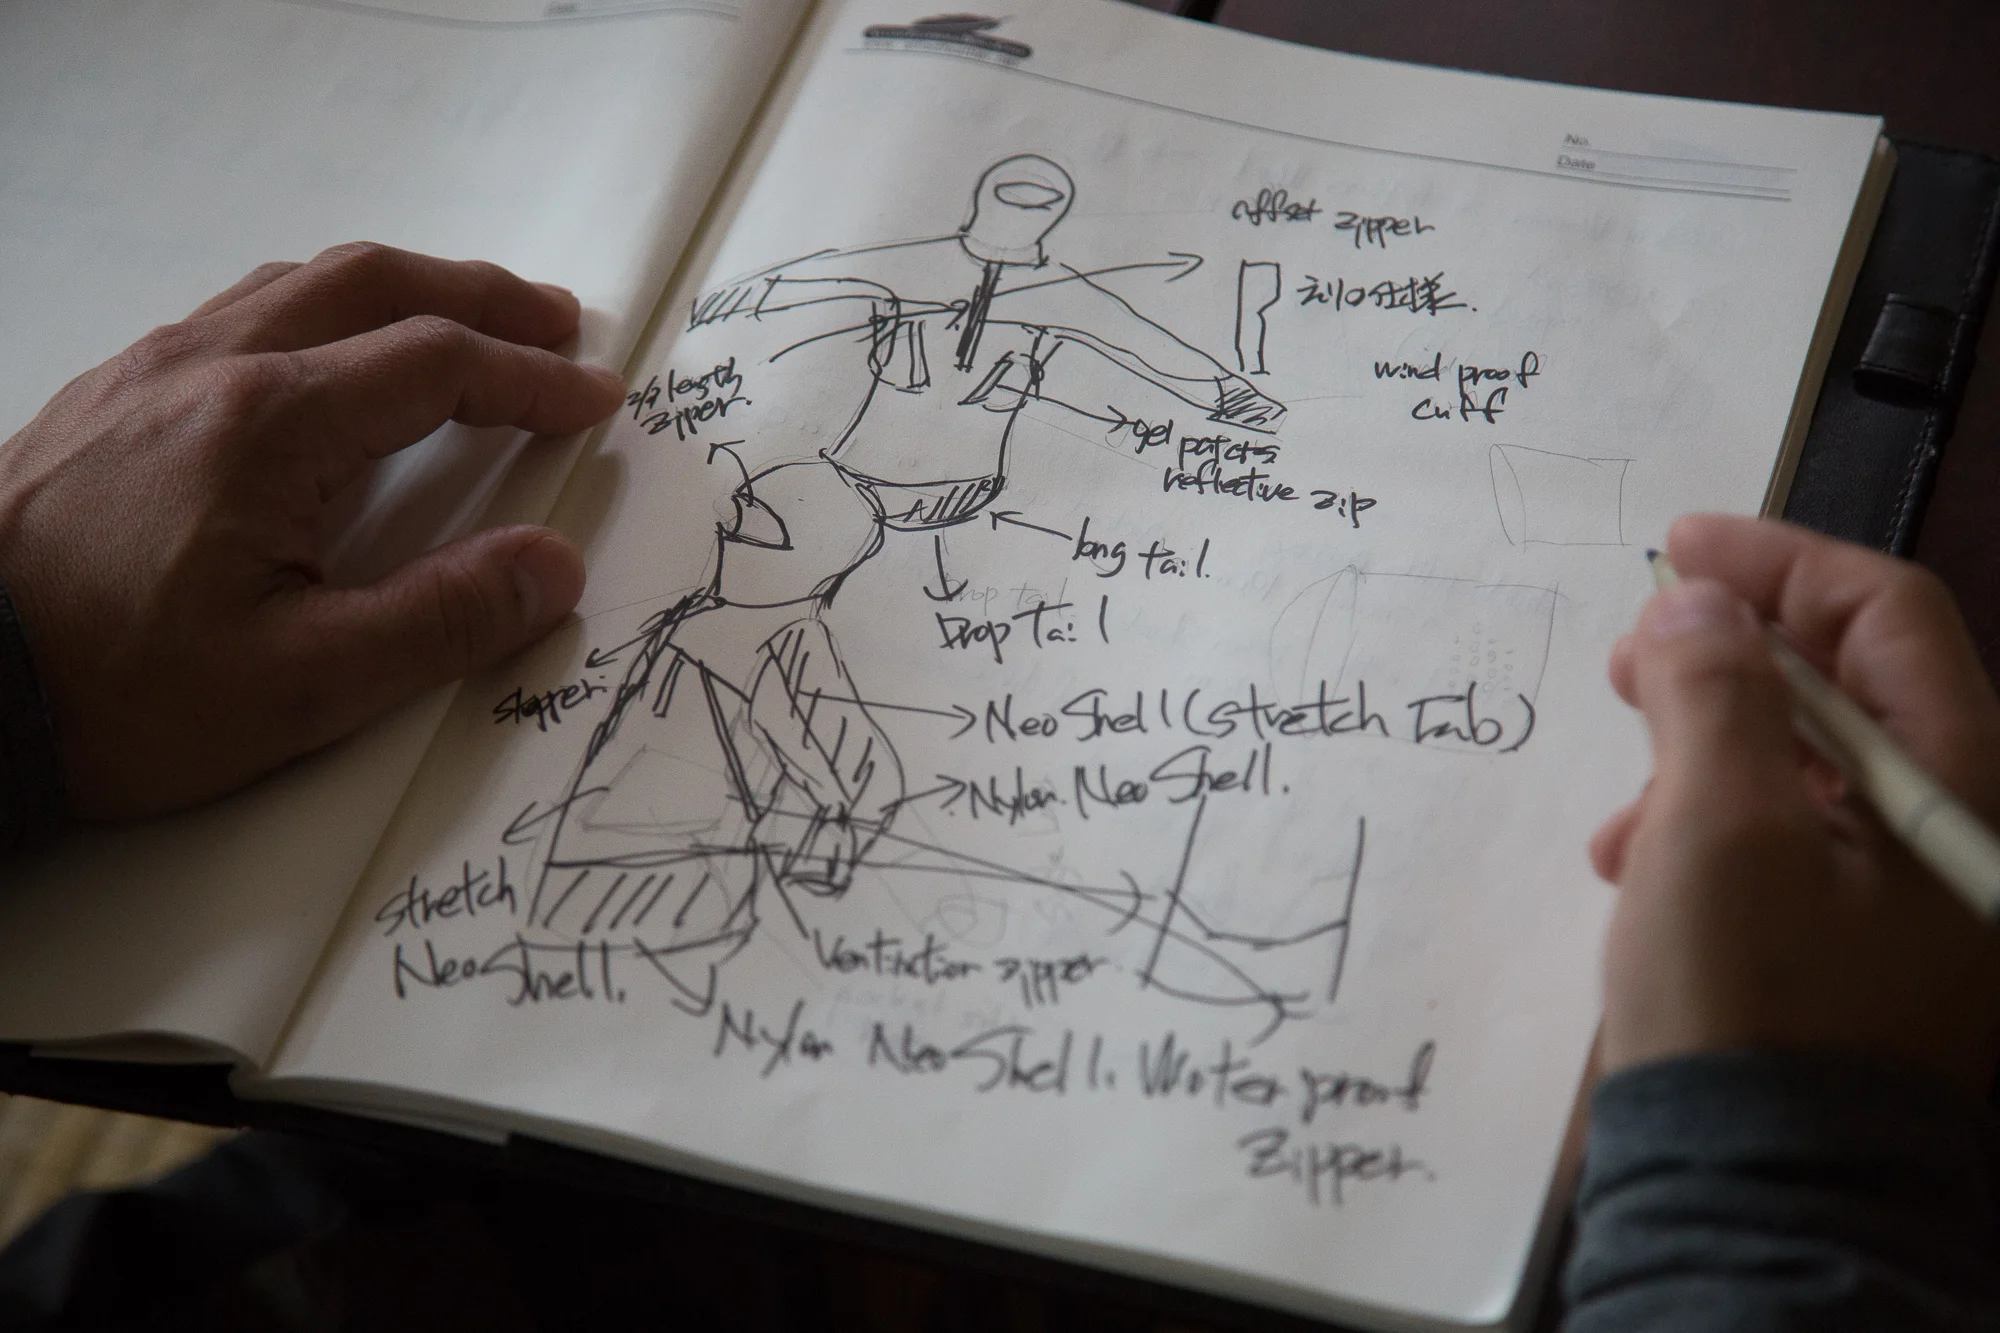 No.
Date
offset zipper
えり口仕様.
wind proof
cuff
2/3 length
zipper.
gel patchs
reflective zip
long tail.
Drop tail
Drop Tail
stopper.
NeoShell (stretch Fab)
Nylon. NeoShell.
stretch
NeoShell.
Ventilation zipper
Nylon NeoShell. Water proof
Zipper.